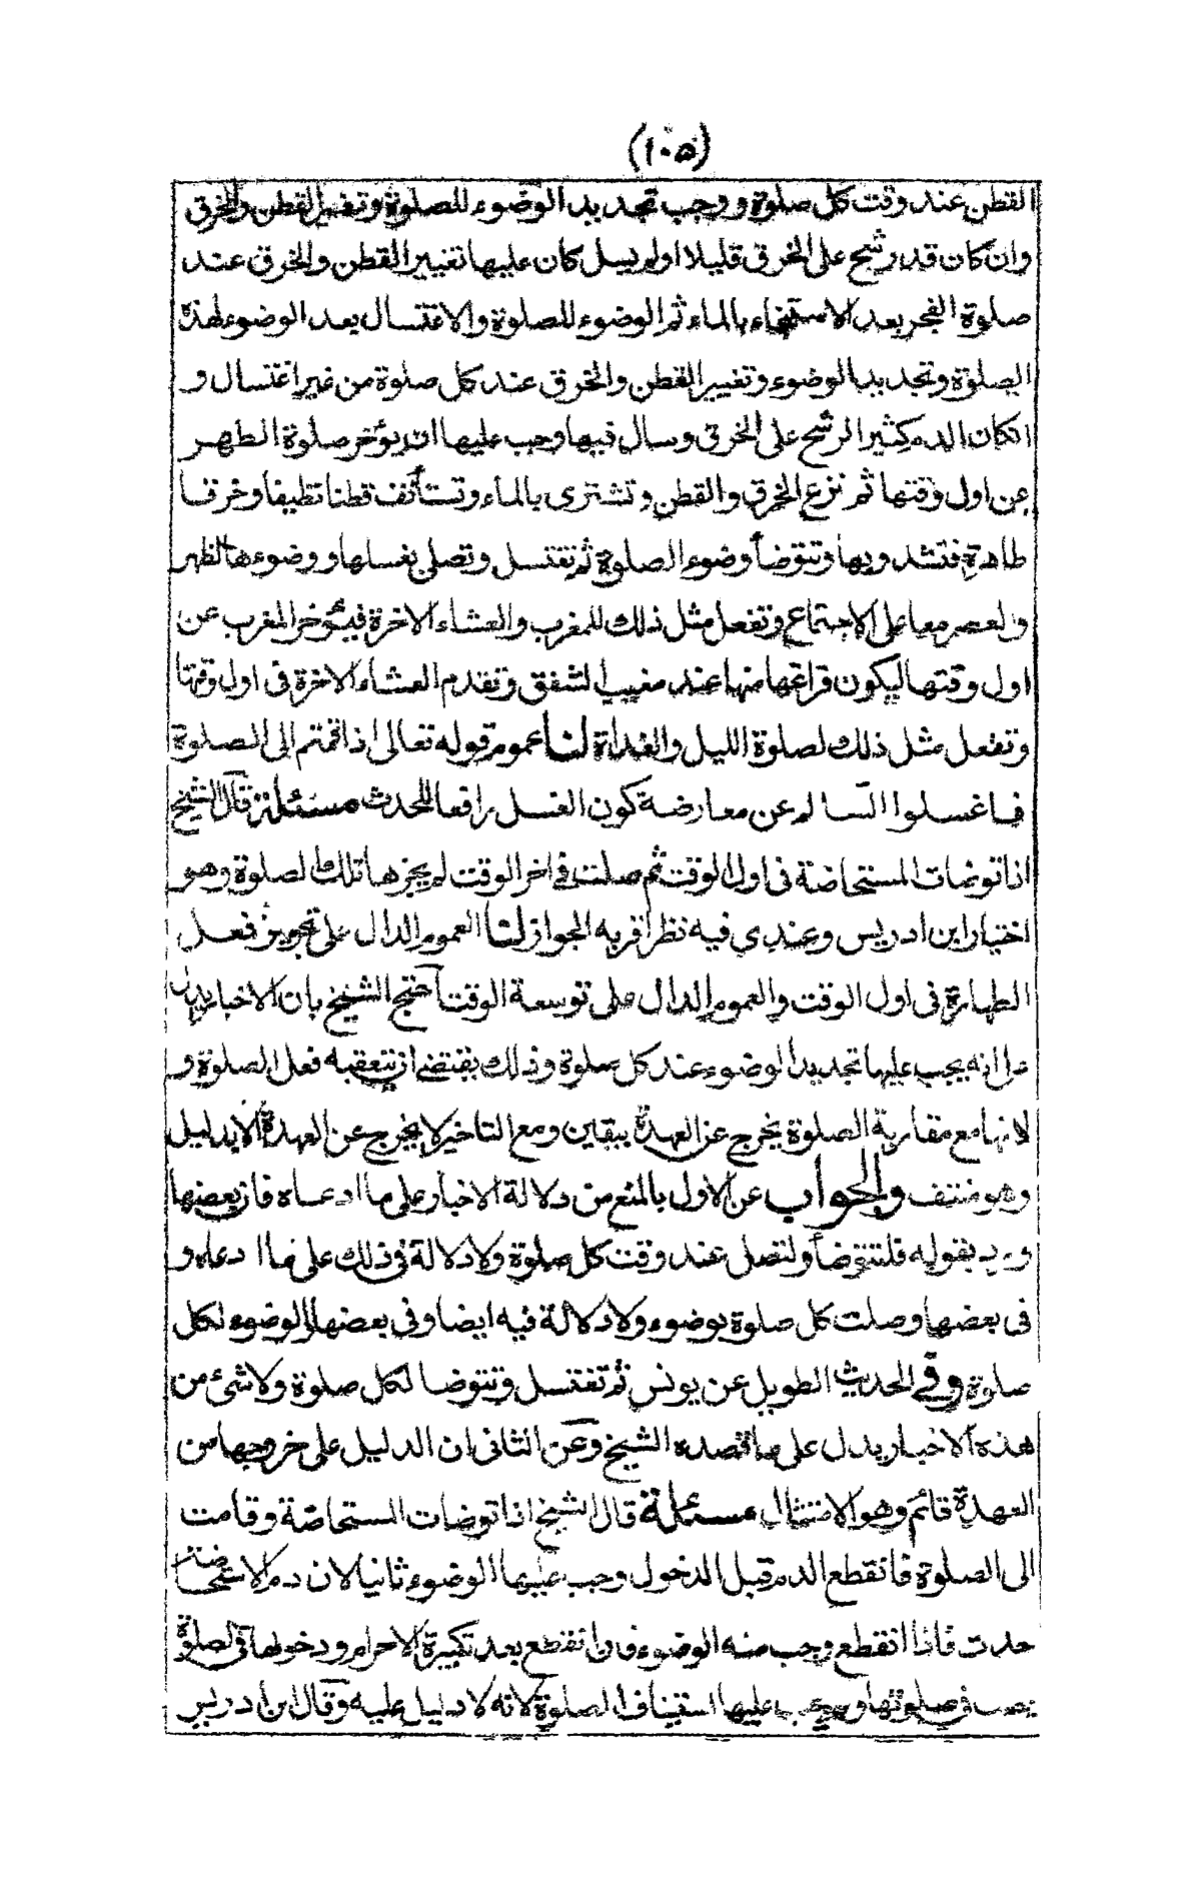 (١٠٥)
القطن عند وقت كل صلوة ووجب تجديد الوضوء للصلوة وتغيير القطن والخرق
وان كان قد رشح على الخرق قليلا اولم يسل كان عليها تغيير القطن والخرق عند
صلوة الفجر بعد الاستنجاء بالماء ثم الوضوء للصلوة والاغتسال بعد الوضوء لهذه
الصلوة وتجديد الوضوء وتغيير القطن والخرق عند كل صلوة من غير اغتسال و
انكان الدم كثير الرشح على الخرق وسال فيها وجب عليها ان يؤخر صلوة الظهر
عن اول وقتها ثم نزع الخرق والقطن وتشترى بالماء وتستأنف قطنا نظيفا وخرقا
طاهرة فتشد وبها وتتوضأ وضوء الصلوة ثم تغتسل وتصلى بغسلها ووضوءها الظهر
والعصر معا على الاجتماع وتفعل مثل ذلك للمغرب والعشاء الاخرة فيؤخر المغرب عن
اول وقتها ليكون فراغها منها عند مغيب الشفق وتقدم العشاء الاخرة فى اول وقتها
وتفعل مثل ذلك لصلوة الليل والغداة لنا عموم قوله تعالى اذا قمتم الى الصلوة
فاغسلوا السالم عن معارضة كون الغسل رافعا للحدث مسئلة قال الشيخ
اذا توضات المستحاضة فى اول الوقت ثم صلت فى اخر الوقت لم يجزها تلك الصلوة وهو
اختيار ابن ادريس وعندي فيه نظر اقربه الجواز لنا العموم الدال على تجويز فعل
الطهارة فى اول الوقت والعموم الدال على توسعة الوقت احتج الشيخ بان الاخبار يدل
على انه يجب عليها تجديد الوضوء عند كل صلوة وذلك يقتضى ان تتعقبه فعل الصلوة و
لانها مع مقاربة الصلوة يخرج عن العهدة بيقين ومع التاخير لا يخرج عن العهدة الا بدليل
وهو منتف والجواب عن الاول بالمنع من دلالة الاخبار على ما ادعاه فان بعضها
ورد بقوله فلتتوضأ ولتصل عند وقت كل صلوة ولا دلالة فى ذلك على ما ادعاه و
فى بعضها وصلت كل صلوة بوضوء ولا دلالة فيه ايضا وفى بعضها الوضوء لكل
صلوة وفي الحديث الطويل عن يونس ثم تغتسل وتتوضا لكل صلوة ولا شئ من
هذه الاخبار يدل على ما قصده الشيخ وعن الثانى ان الدليل على خروجها من
العهدة قائم وهو الامتثال مسئلة قال الشيخ اذا توضات المستحاضة وقامت
الى الصلوة فانقطع الدم قبل الدخول وجب عليها الوضوء ثانيا لان دم الاستحاضة
حدث فاذا انقطع وجب منه الوضوء فان انقطع بعد تكبيرة الاحرام ودخولها فى الصلوة
فى صلوتها عليها استيناف الصلوة لانه لا دليل عليه وقال ابن ادريس